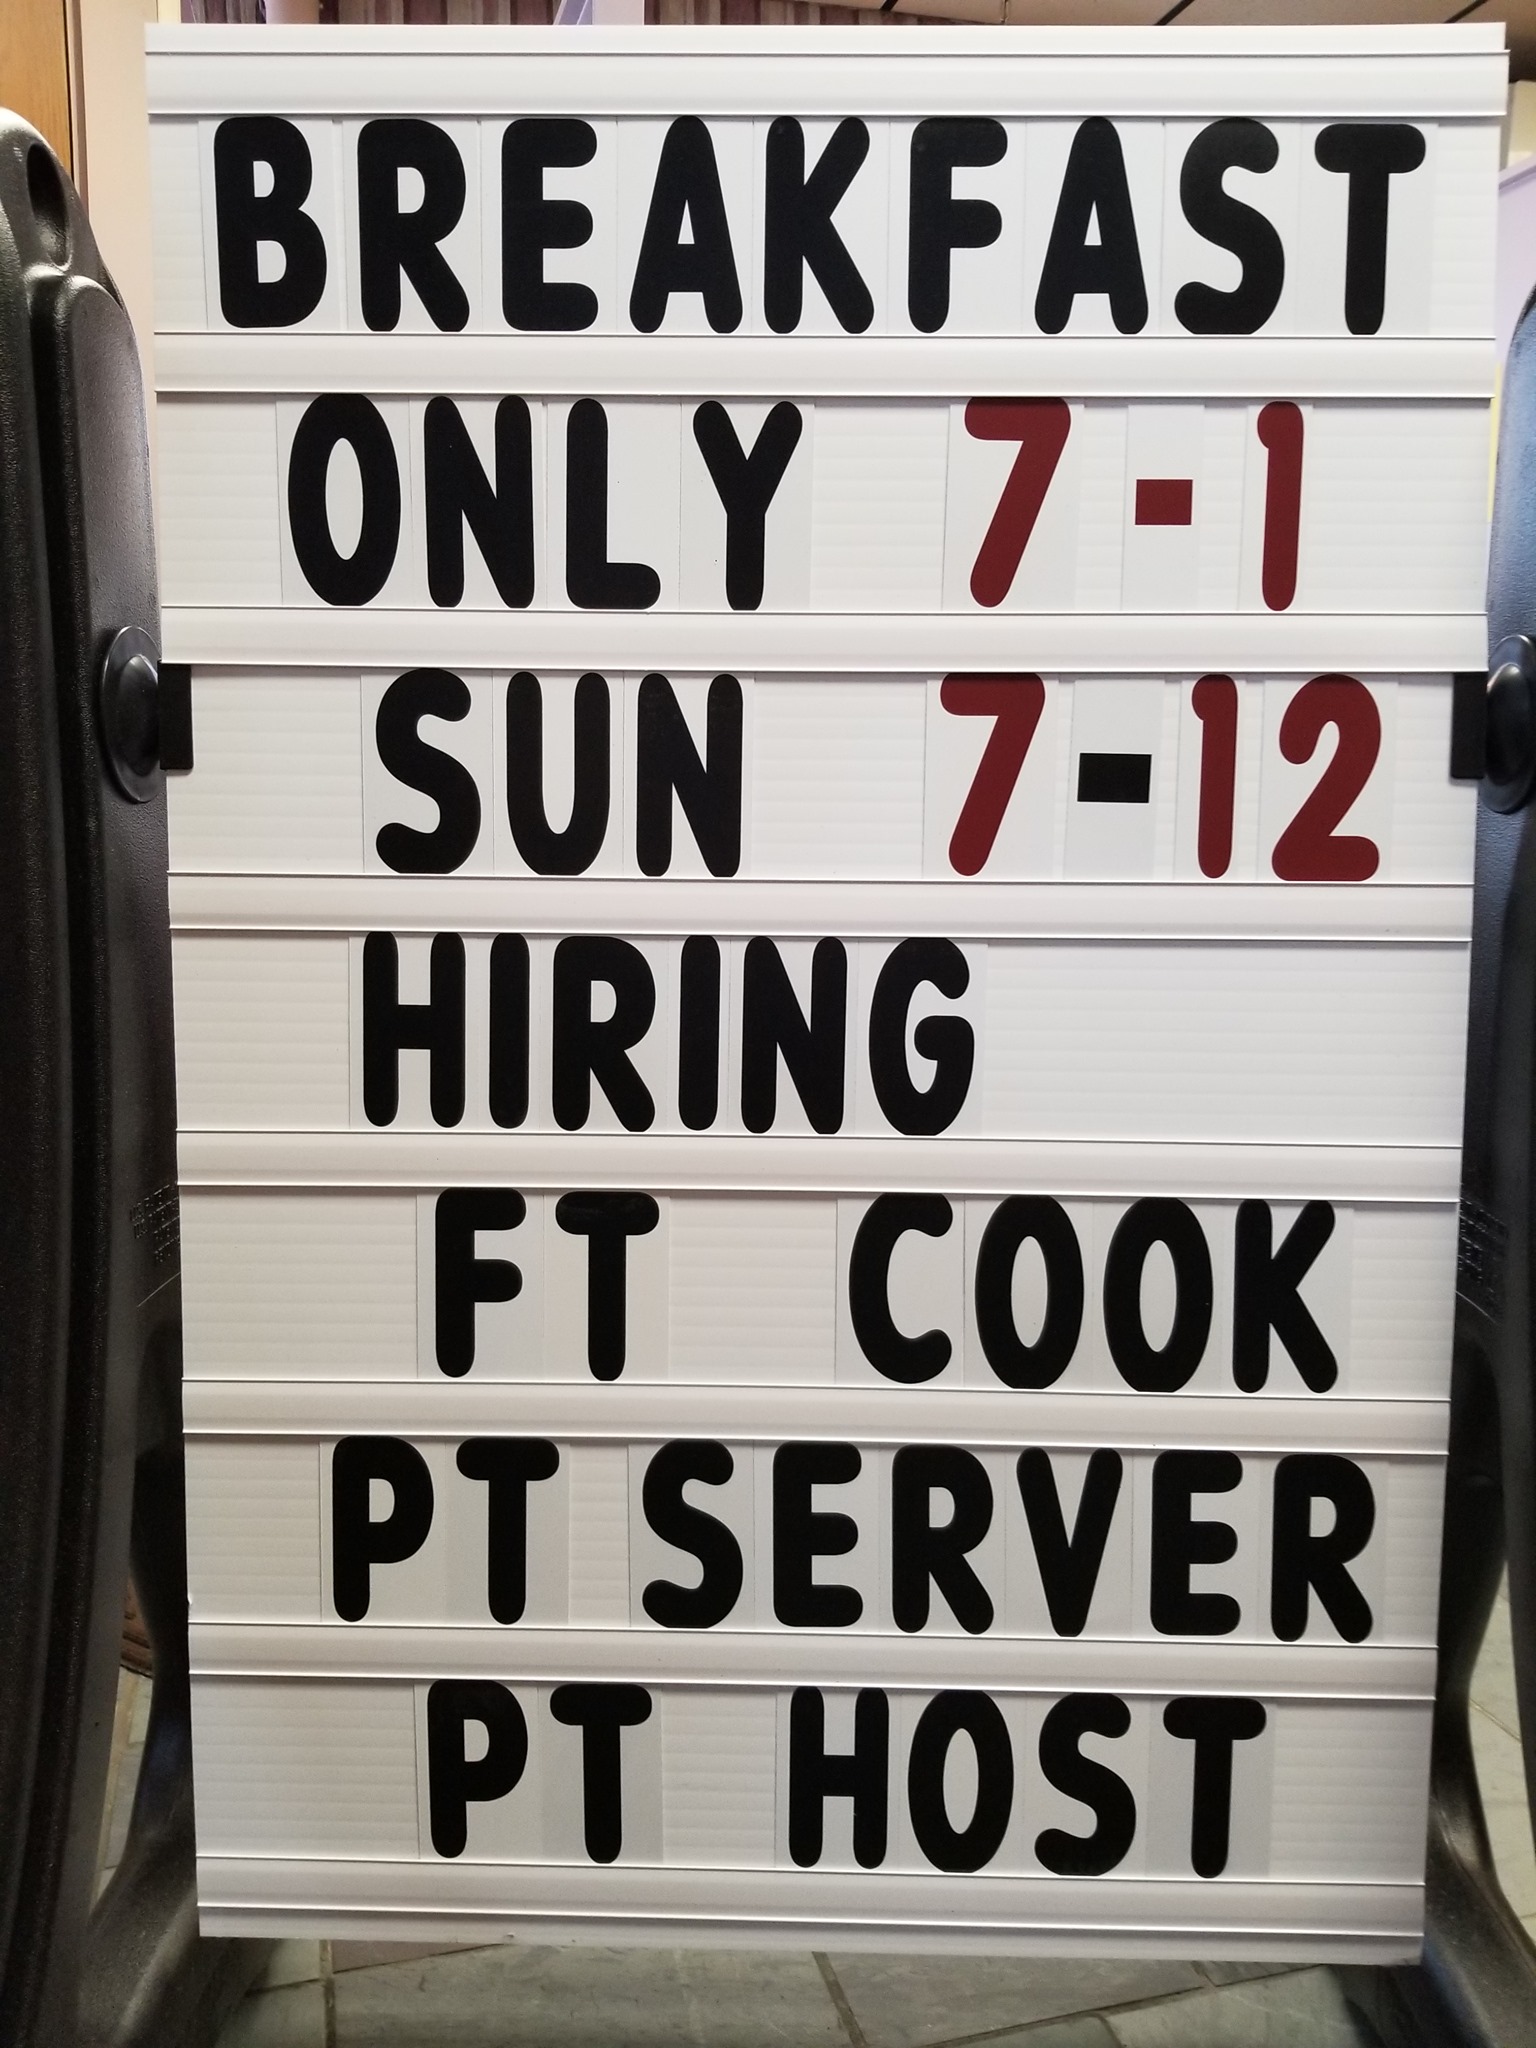 BREAKFAST
ONLY 7-1
SUN 7-12
HIRING
FT COOK
PT SERVER
PT HOST